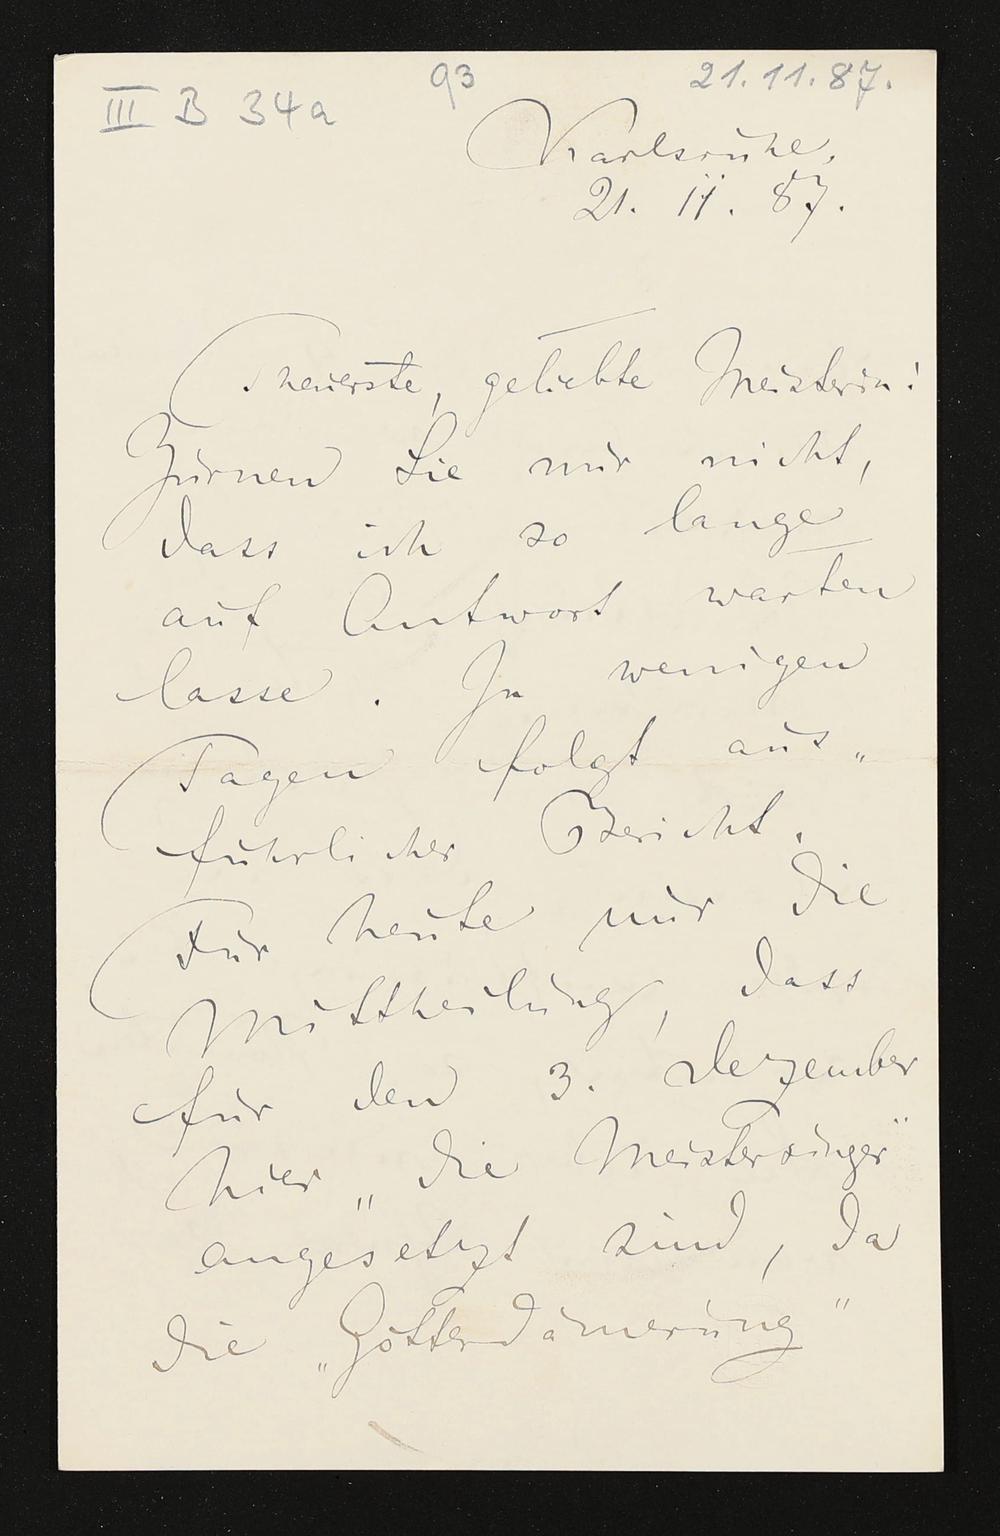 III B 34a
93
21.11.87.
Karlsruhe,
21. 11. 87.
Theuerste, geliebte Meisterin!
Zürnen Sie mir nicht,
dass ich so lange
auf Antwort warten
lasse. In wenigen
Tagen folgt aus„
führlicher Bericht.
Für heute nur die
Mittheilung, dass
für den 3. Dezember
hier „die Meistersinger"
angesetzt sind, da
die „Götterdämerung"